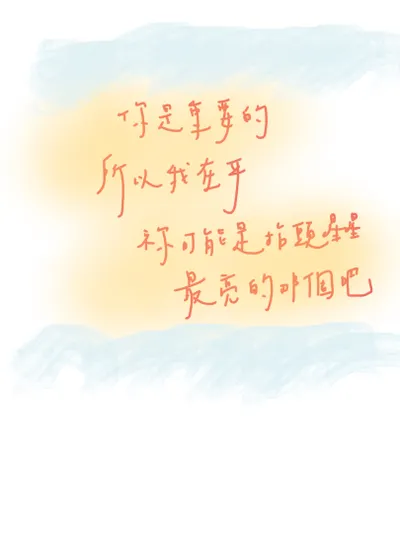 你是重要的
所以我在乎
祢可能是指頭星星
最亮的那個吧